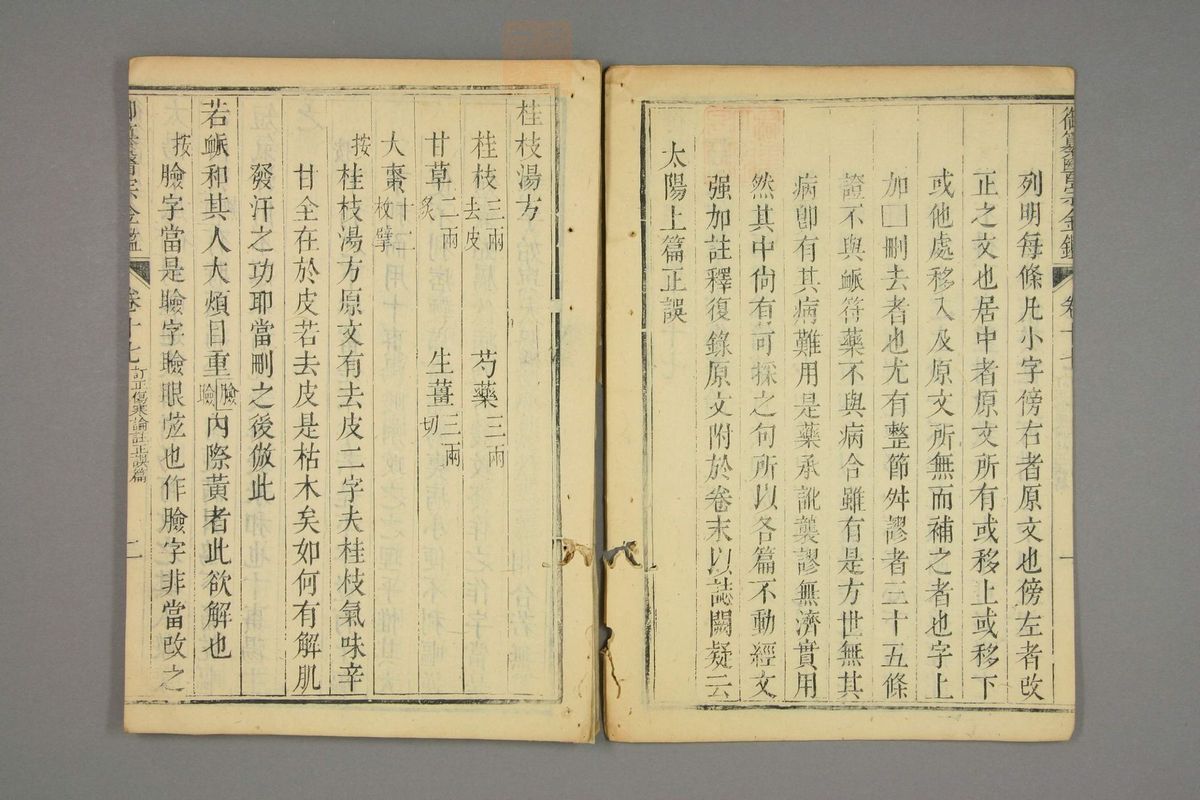 御纂醫宗金鑑 卷十七 一
列明每條凡小字傍右者原文也傍左者改
正之文也居中者原文所有或移上或移下
或他處移入及原文所無而補之者也字上
加囗刪去者也尤有整節舛謬者三十五條
證不與脈符藥不與病合雖有是方世無其
病卽有其病難用是藥承訛襲謬無濟實用
然其中尙有可採之句所以各篇不動經文
强加註釋復錄原文附於卷末以誌闕疑云
太陽上篇正誤
桂枝湯方
桂枝三兩去皮 芍藥三兩
甘草二兩炙 生薑三兩切
大棗十二枚擘
按桂枝湯方原文有去皮二字夫桂枝氣味辛
甘全在於皮若去皮是枯木矣如何有解肌
發汗之功耶當刪之後倣此
若脈和其人大煩目重臉瞼內際黃者此欲解也
按臉字當是瞼字瞼眼弦也作臉字非當改之
御纂醫宗金鑑 卷十七 訂正傷寒論註正誤篇 二